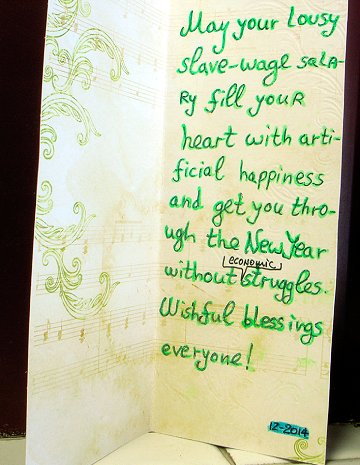 May your lousy
slave-wage sala-
ry fill your
heart with arti-
ficial happiness
and get you thro-
ugh the New Year
economic
without struggles.
Wishful blessings
everyone!
12-2014